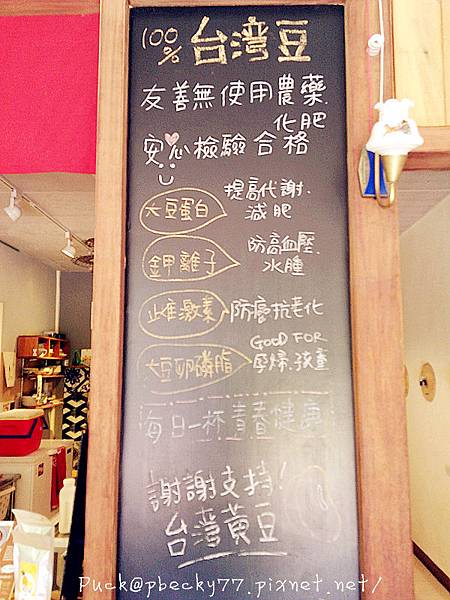 100% 台湾豆
友善無使用農藥.化肥
安心檢驗合格
大豆蛋白 提高代謝.減肥
鉀離子 防高血壓.水腫
止雌激素 防癌抗老化
大豆卵磷脂 GOOD FOR 孕婦.孩童
每日一杯青春健康
謝謝支持!
台灣黃豆
Puck@pbecky77.pixnet.net/